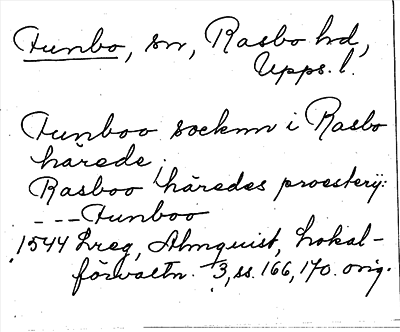 Funbo, sn, Rasbo hd,
Upps. l.
Funboo socknn i Rasbo
härede.
Rasboo häredes proesterij:
--- Funboo
1544 Lreg, Almquist, Lokal-
förvaltn. 3, ss. 166, 170. orig.